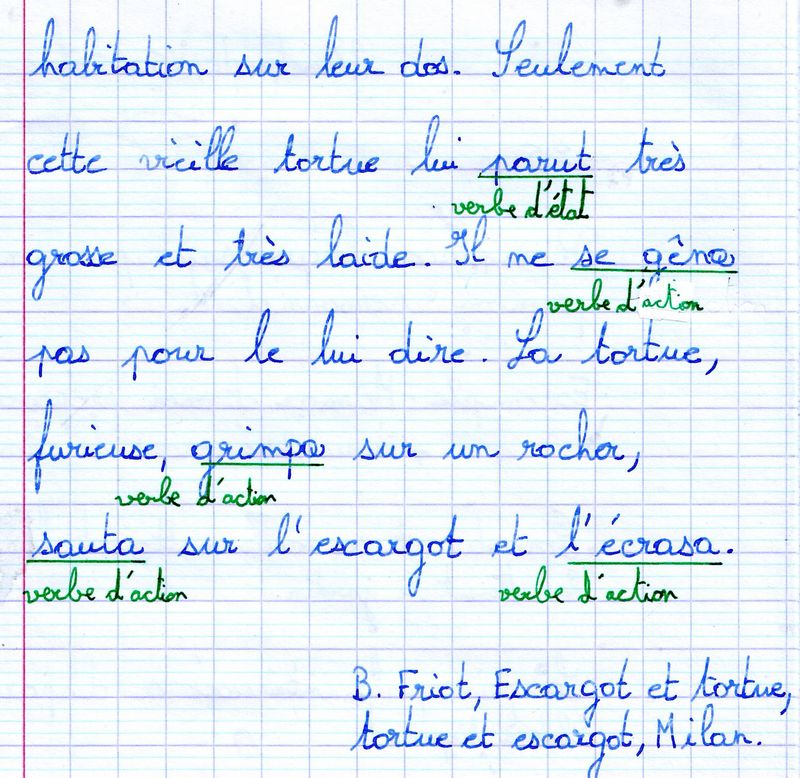 habitation sur leur dos. Seulement
cette vieille tortue lui parut très
verbe d'état
grosse et très laide. Il ne se gêna
verbe d'action
pas pour le lui dire. La tortue,
furieuse, grimpa sur un rocher,
verbe d'action
sauta sur l'escargot et l'écrasa.
verbe d'action verbe d'action
B. Friot, Escargot et tortue,
tortue et escargot, Milan.